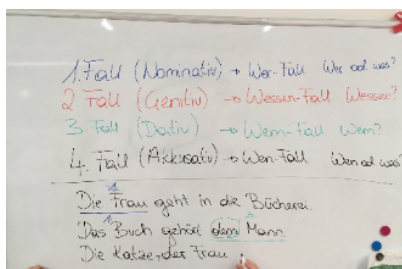 1. Fall (Nominativ) → Wer-Fall Wer od. was?
2. Fall (Genitiv) → Wessen-Fall Wessen?
3. Fall (Dativ) → Wem-Fall Wem?
4. Fall (Akkusativ) → Wen-Fall Wen od. was?
1
Die Frau geht in die Bücherei.
1
Das Buch gehört dem Mann
Die Katze, der Frau